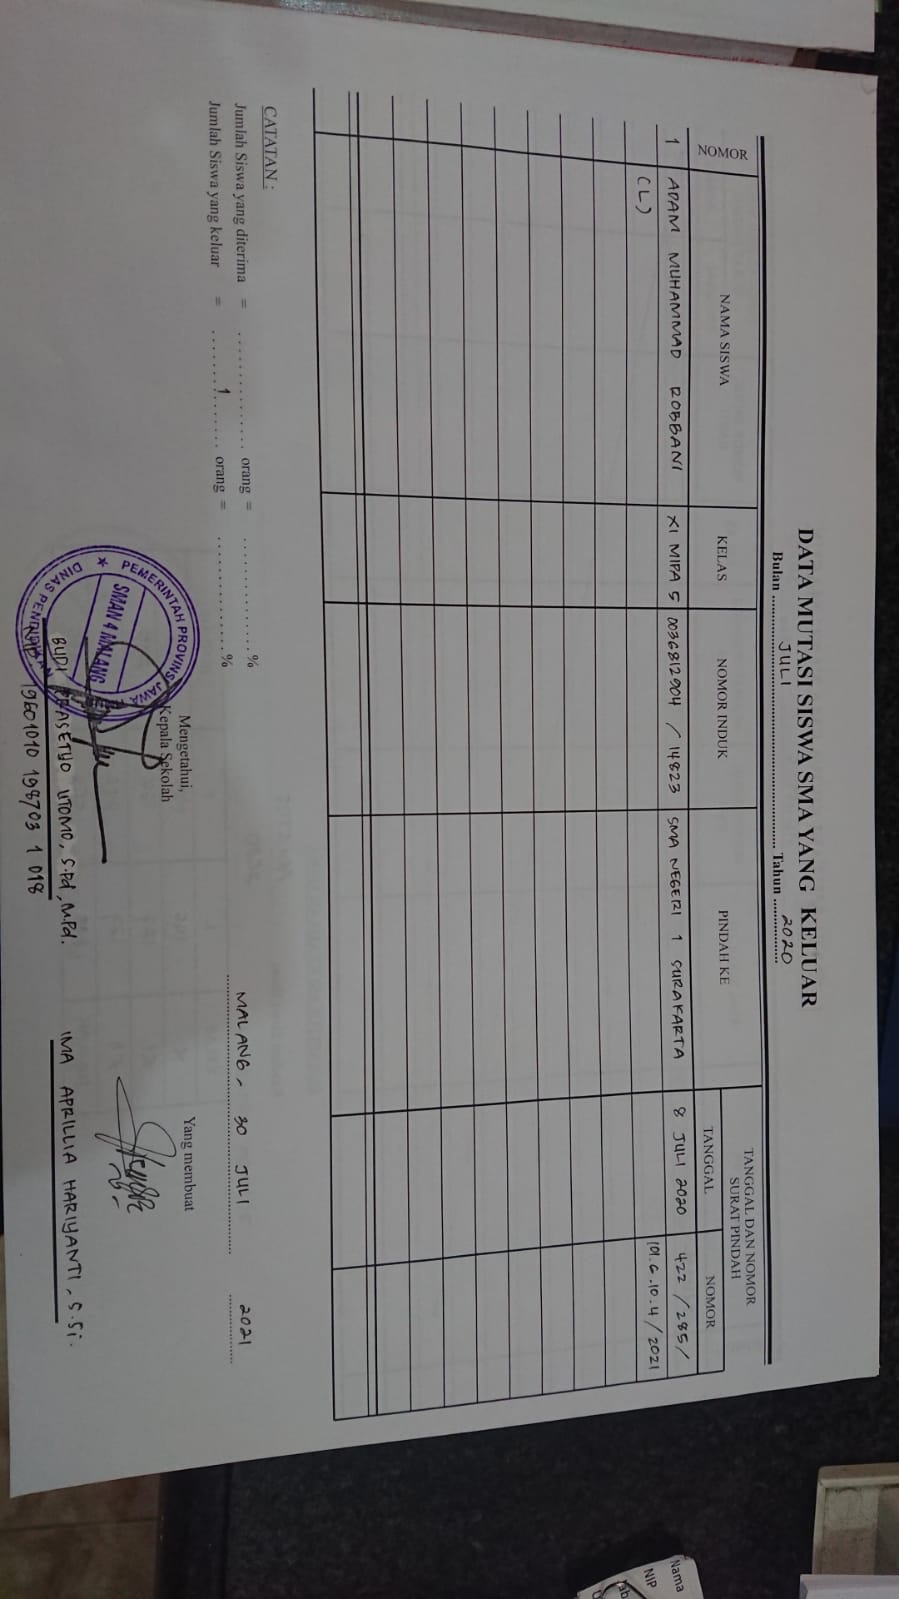 DATA MUTASI SISWA SMA YANG KELUAR
Bulan JULI Tahun 2020
NOMOR
NAMA SISWA
KELAS
NOMOR INDUK
PINDAH KE
TANGGAL DAN NOMOR
SURAT PINDAH
TANGGAL
NOMOR
1 ADAM MUHAMMAD ROBBANI XI MIPA 5 0036812904 / 14823 SMA NEGERI 1 SURAKARTA 8 JULI 2020 422 / 285 /
(L) 101.6.10.4 / 2021
CATATAN :
Jumlah Siswa yang diterima = ............... orang = ............... %
Jumlah Siswa yang keluar = ........1....... orang = ............... %
MALANG, 30 JULI 2021
Mengetahui,
Kepala Sekolah
Yang membuat
PEMERINTAH PROVINSI JAWA
SMAN 4 MALANG
DINAS PENDIDIKAN
BUDI PRASETYO UTOMO, S.Pd, M.Pd.
NIP. 19601010 198703 1 018
IMA APRILLIA HARIYANTI, S.Si.
Nama
NIP